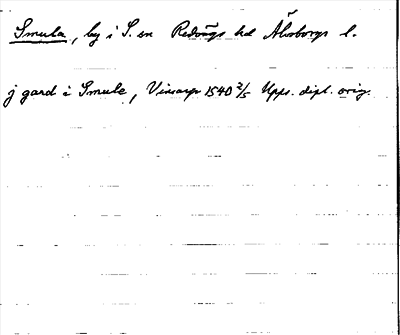 Smula, by i S. sn Redvägs hd Älvsborgs l.
j gard i Smule, Vinsarp 1540 2/5 Upps. dipl. orig.